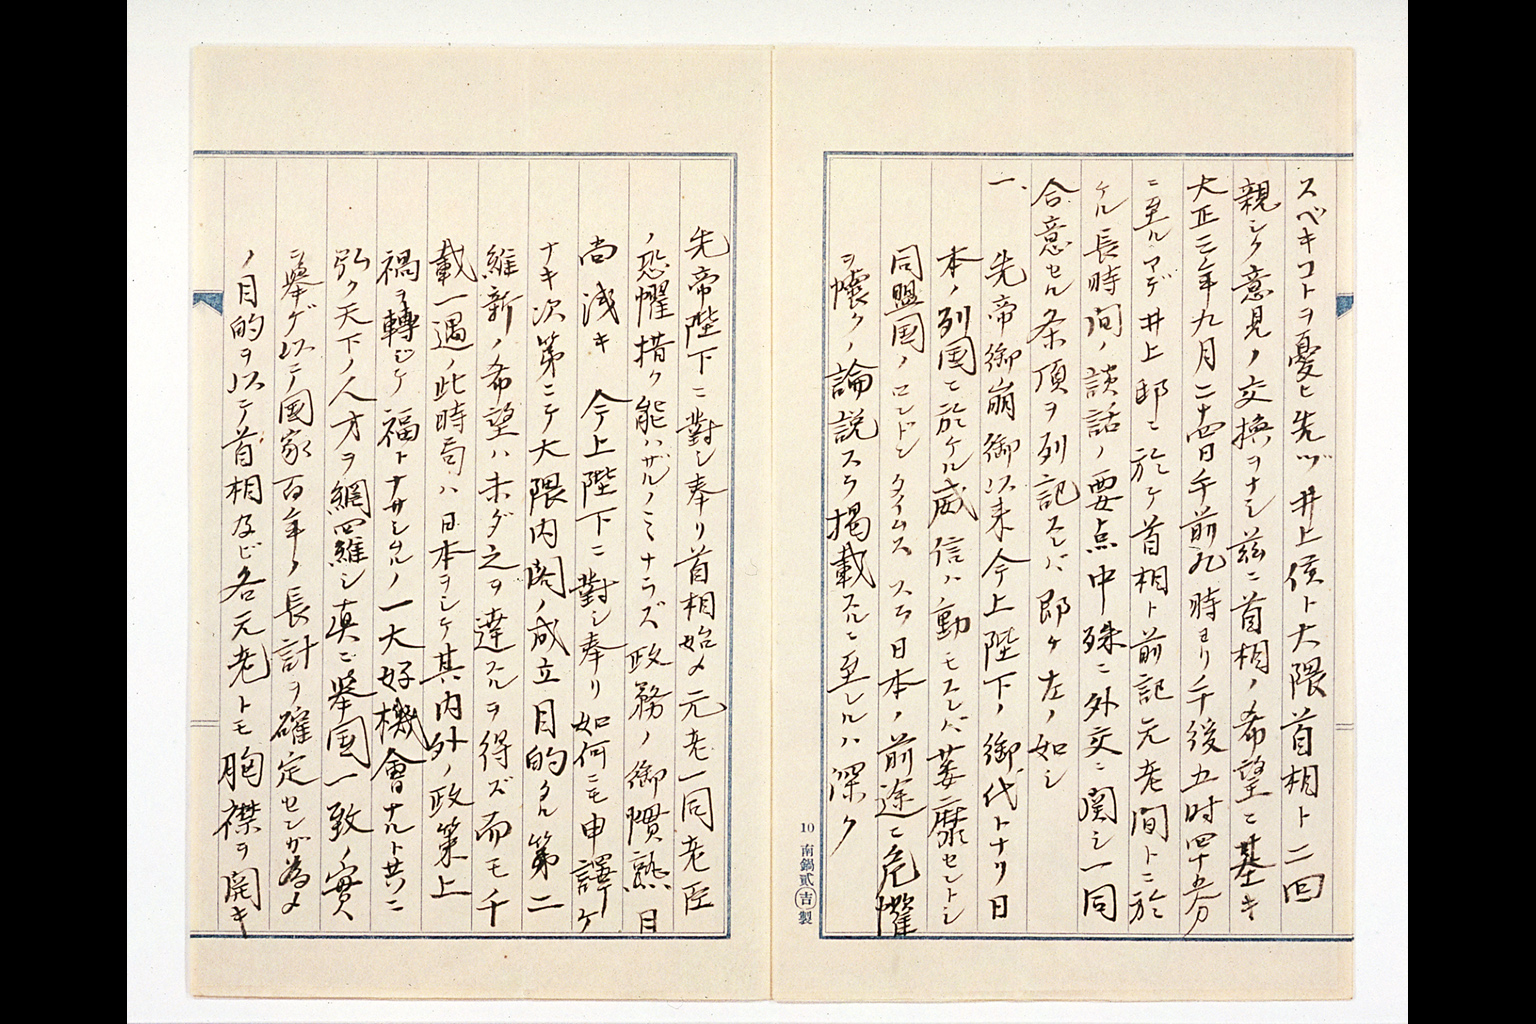 スベキコトヲ憂ヒ先ヅ井上侯ト大隈首相ト二回
親シク意見ノ交換ヲナシ茲ニ首相ノ希望ニ基キ
大正三年九月二十四日午前九時ヨリ午後五時四十五分
ニ至ルマデ井上邸ニ於ケ首相ト前記元老間トニ於
ケル長時间ノ談話ノ要点中殊ニ外交ニ関シ一同
合意セル条項ヲ列記スレバ即ケ左ノ如シ
一、先帝御崩御以来今上陛下ノ御代トナリ日
本ノ列国ニ於ケル威信ハ動モスレバ萎靡セントシ
同盟国ノロンドンタイムススラ日本ノ前途ニ危惧
ヲ懐クノ論説スラ掲載スルニ至レルハ深ク
先帝陛下ニ對シ奉リ首相始メ元老一同老臣
ノ恐懼措ク能ハザルノミナラズ政務ノ御慣熟日
尚浅キ 今上陛下ニ對シ奉リ如何ニモ申譯ケ
ナキ次第ニテ大隈内閣ノ成立目的タル第二
維新ノ希望ハ未ダ之ヲ達スルヲ得ズ而モ千
載一遇ノ此時局ハ日本ヲシテ其内外ノ政策上
禍ヲ轉じケ福トナサシムルノ一大好機會ナルト共ニ
弘ク天下ノ人才ヲ網羅シ真ニ挙国一致ノ實
ヲ挙ゲ以テ国家百年ノ長計ヲ確定センガ為メ
ノ目的ヲ以テ首相及ビ各元老トモ胸襟ヲ開キ
10 南鍋貳吉製